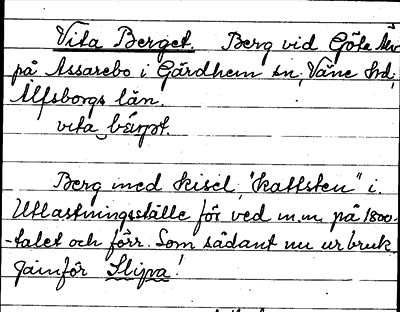 Vita Berget. Berg vid Göta Älv
på Assarebo i Gärdhem sn, Väne hd,
Älfsborgs län.
vita
Berg med kisel, "kattsten" i.
Utlastningsställe för ved m.m. på 1800-
-talet och förr. Som sådant nu ur bruk.
Jämför Slipa!